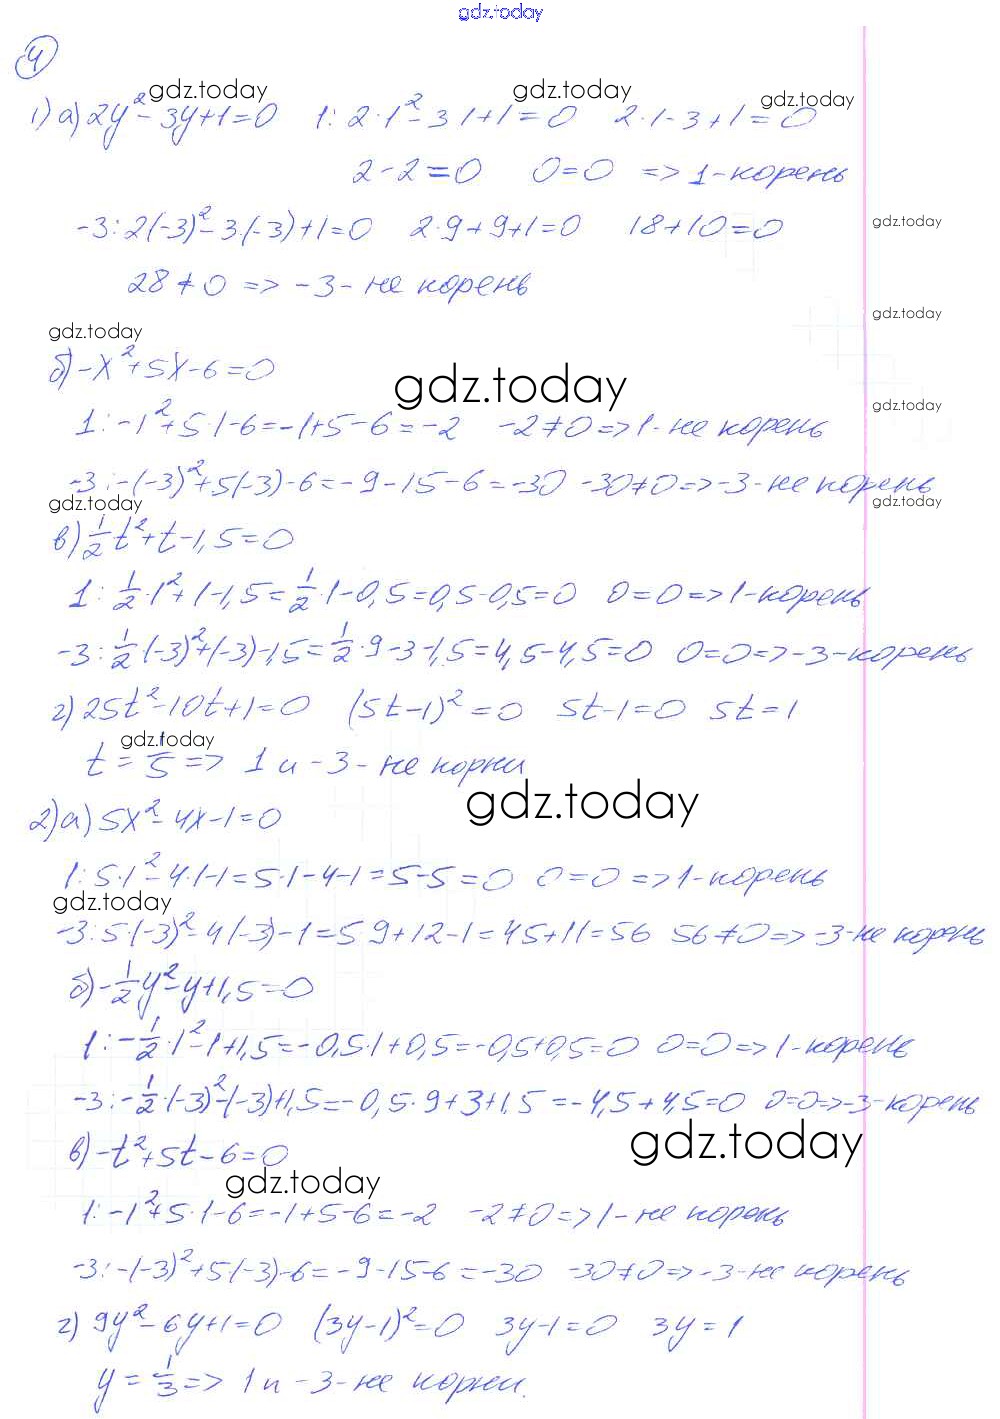 gdz.today
4
gdz.today gdz.today gdz.today
1) а) 2y² - 3y + 1 = 0 1: 2·1² - 3·1 + 1 = 0 2·1 - 3 + 1 = 0
2 - 2 = 0 0 = 0 => 1 - корень
-3: 2(-3)² - 3·(-3) + 1 = 0 2·9 + 9 + 1 = 0 18 + 10 = 0 gdz.today
28 ≠ 0 => -3 - не корень
gdz.today gdz.today
б) -x² + 5x - 6 = 0 gdz.today
1: -1² + 5·1 - 6 = -1 + 5 - 6 = -2 -2 ≠ 0 => 1 - не корень gdz.today
-3: -(-3)² + 5(-3) - 6 = -9 - 15 - 6 = -30 -30 ≠ 0 => -3 - не корень
gdz.today gdz.today
в) 1/2 t² + t - 1,5 = 0
1: 1/2·1² + 1 - 1,5 = 1/2·1 - 0,5 = 0,5 - 0,5 = 0 0 = 0 => 1 - корень
-3: 1/2·(-3)² + (-3) - 1,5 = 1/2·9 - 3 - 1,5 = 4,5 - 4,5 = 0 0 = 0 => -3 - корень
г) 25t² - 10t + 1 = 0 (5t - 1)² = 0 5t - 1 = 0 5t = 1
gdz.today
t = 1/5 => 1 и -3 - не корни
gdz.today
2) а) 5x² - 4x - 1 = 0
1: 5·1² - 4·1 - 1 = 5·1 - 4 - 1 = 5 - 5 = 0 0 = 0 => 1 - корень
gdz.today
-3: 5·(-3)² - 4(-3) - 1 = 5·9 + 12 - 1 = 45 + 11 = 56 56 ≠ 0 => -3 - не корень
б) -1/2 y² - y + 1,5 = 0
1: -1/2·1² - 1 + 1,5 = -0,5·1 + 0,5 = -0,5 + 0,5 = 0 0 = 0 => 1 - корень
-3: -1/2·(-3)² - (-3) + 1,5 = -0,5·9 + 3 + 1,5 = -4,5 + 4,5 = 0 0 = 0 => -3 - корень
в) -t² + 5t - 6 = 0 gdz.today
gdz.today
1: -1² + 5·1 - 6 = -1 + 5 - 6 = -2 -2 ≠ 0 => 1 - не корень
-3: -(-3)² + 5(-3) - 6 = -9 - 15 - 6 = -30 -30 ≠ 0 => -3 - не корень
г) 9y² - 6y + 1 = 0 (3y - 1)² = 0 3y - 1 = 0 3y = 1
y = 1/3 => 1 и -3 - не корни.